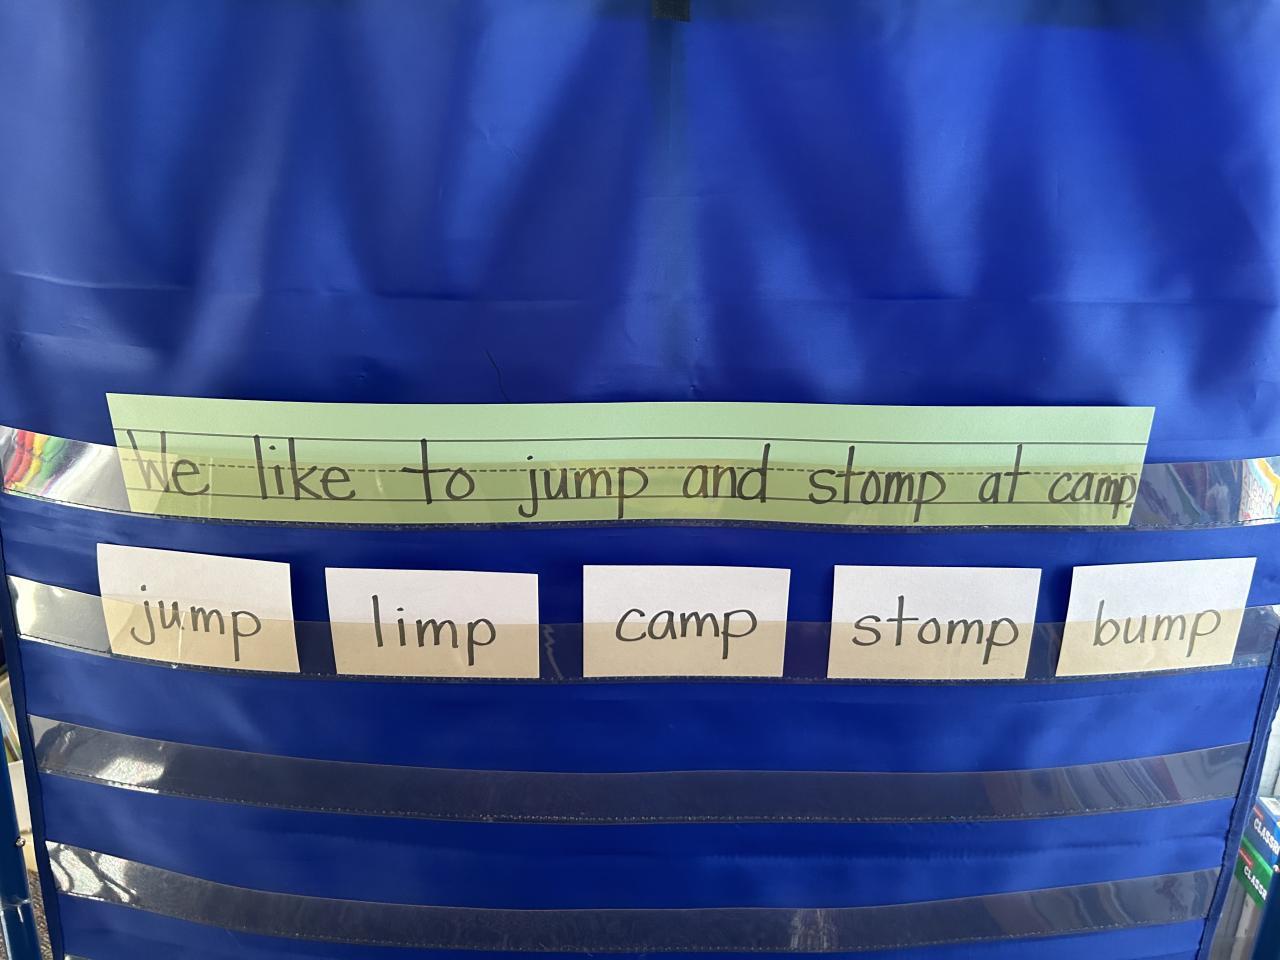 We like to jump and stomp at camp.
jump limp camp stomp bump